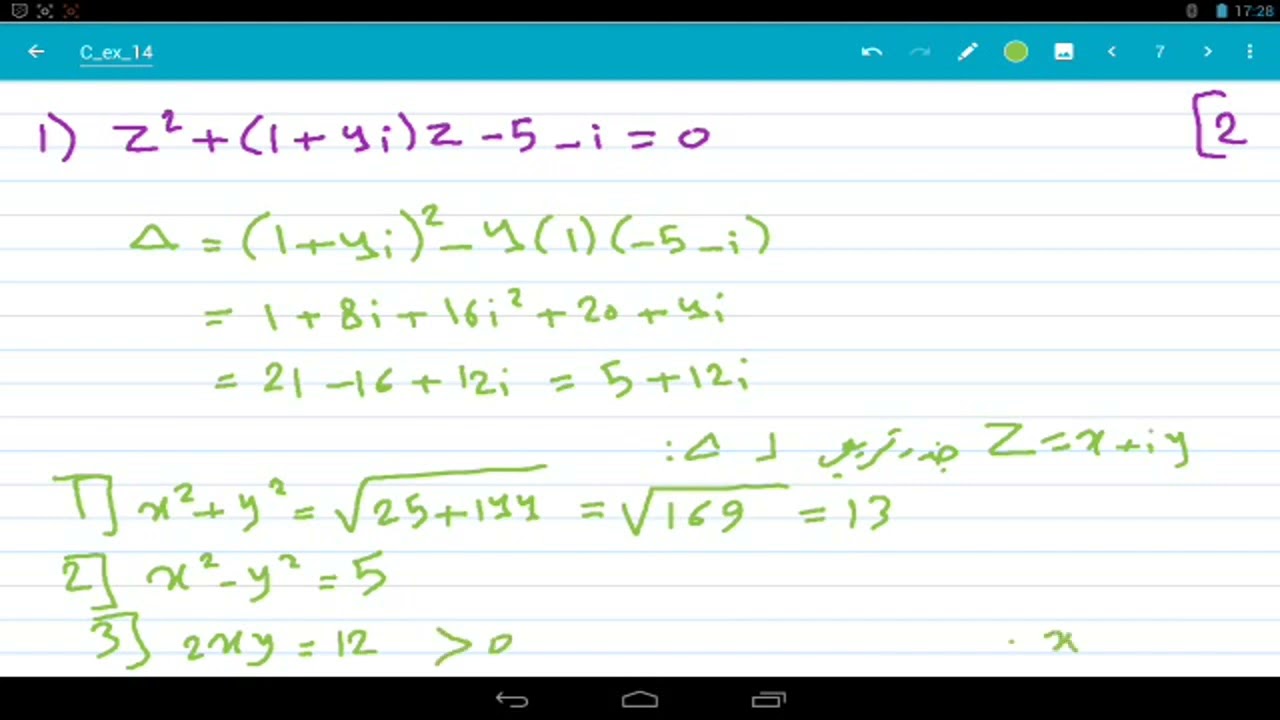 17:28
C_ex_14
7
1) Z² + (1 + 4i) Z - 5 - i = 0
[2
Δ = (1 + 4i)² - 4(1)(-5 - i)
= 1 + 8i + 16i² + 20 + 4i
= 21 - 16 + 12i = 5 + 12i
Z = x + iy جذر تربيعي لـ Δ :
1] x² + y² = √25 + 144 = √169 = 13
2] x² - y² = 5
3] 2xy = 12 > 0
x